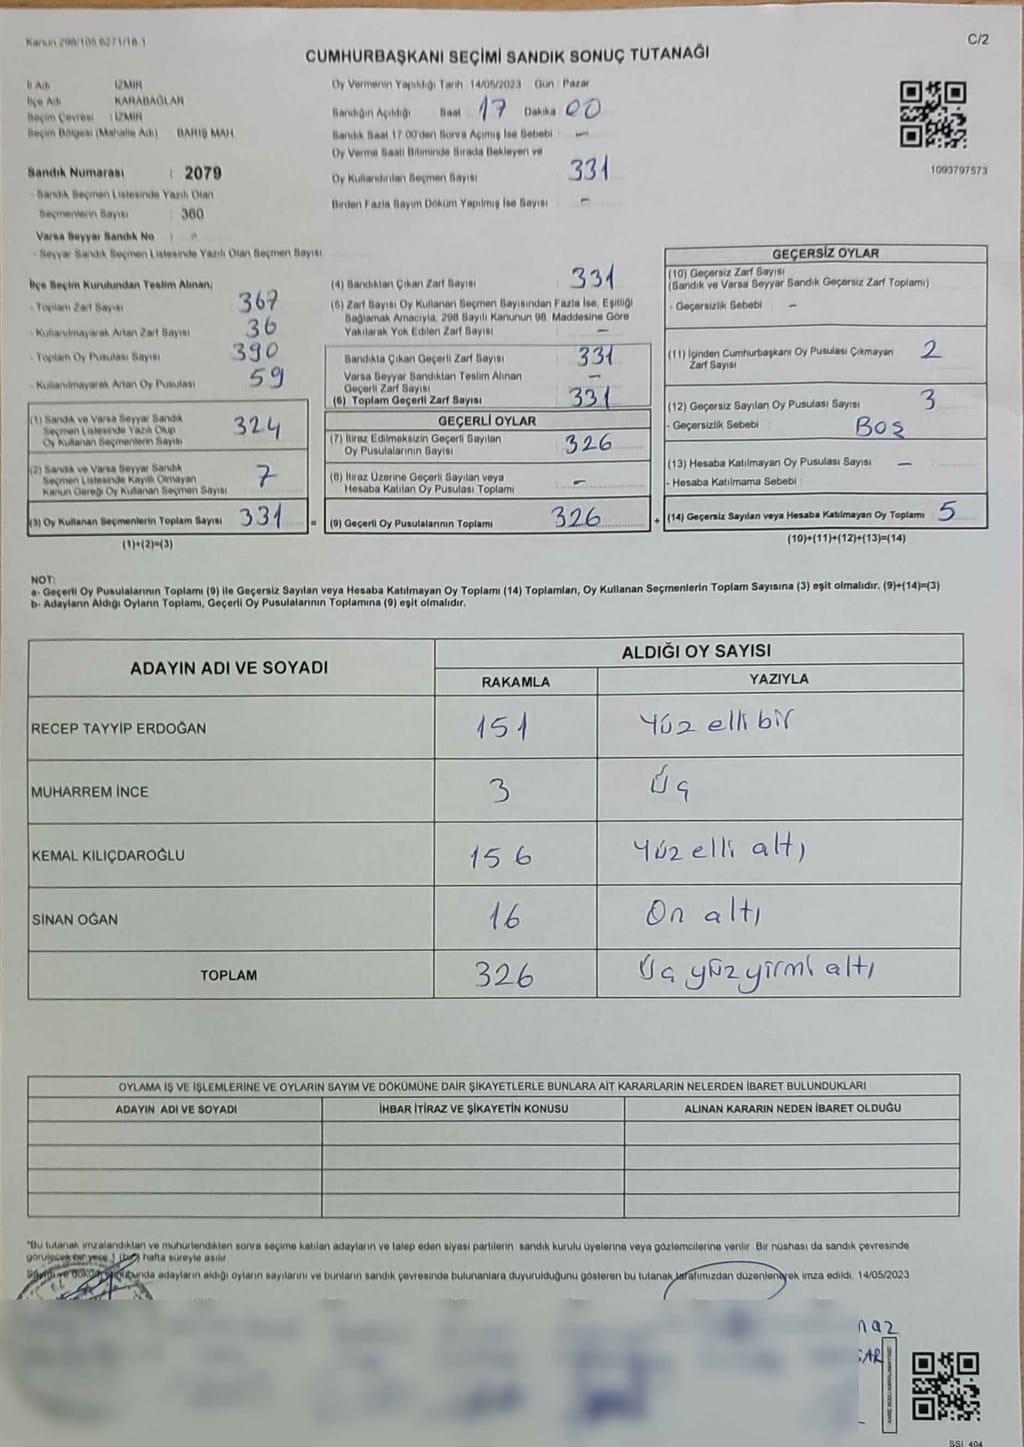 Kanun 298/105 6271/18 1
C/2
CUMHURBAŞKANI SEÇİMİ SANDIK SONUÇ TUTANAĞI
İl Adı : İZMİR
İlçe Adı : KARABAĞLAR
Seçim Çevresi : İZMİR
Seçim Bölgesi (Mahalle Adı) : BARIŞ MAH.
Sandık Numarası : 2079
- Sandık Seçmen Listesinde Yazılı Olan
Seçmenlerin Sayısı : 360
Varsa Seyyar Sandık No : -
- Seyyar Sandık Seçmen Listesinde Yazılı Olan Seçmen Sayısı
Oy Vermenin Yapıldığı Tarih 14/05/2023 Gün : Pazar
Sandığın Açıldığı Saat 17 Dakika 00
Sandık Saat 17.00'den Sonra Açımış İse Sebebi : -
Oy Verme Saati Bitiminde Sırada Bekleyen ve
Oy Kullandırılan Seçmen Sayısı : 331
Birden Fazla Sayım Döküm Yapılmış İse Sayısı : -
1093797573
İlçe Seçim Kurulundan Teslim Alınan;
- Toplam Zarf Sayısı : 367
- Kullanılmayarak Artan Zarf Sayısı : 36
- Toplam Oy Pusulası Sayısı : 390
- Kullanılmayarak Artan Oy Pusulası : 59
(1) Sandık ve Varsa Seyyar Sandık
Seçmen Listesinde Yazılı Olup
Oy Kullanan Seçmenlerin Sayısı 324
(2) Sandık ve Varsa Seyyar Sandık
Seçmen Listesinde Kayıtlı Olmayan
Kanun Gereği Oy Kullanan Seçmen Sayısı 7
(3) Oy Kullanan Seçmenlerin Toplam Sayısı 331 =
(1)+(2)=(3)
(4) Sandıktan Çıkan Zarf Sayısı : 331
(5) Zarf Sayısı Oy Kullanan Seçmen Sayısından Fazla İse, Eşitliği
Sağlamak Amacıyla, 298 Sayılı Kanunun 98. Maddesine Göre
Yakılarak Yok Edilen Zarf Sayısı : -
Sandıkta Çıkan Geçerli Zarf Sayısı : 331
Varsa Seyyar Sandıktan Teslim Alınan
Geçerli Zarf Sayısı : -
(6) Toplam Geçerli Zarf Sayısı : 331
GEÇERLİ OYLAR
(7) İtiraz Edilmeksizin Geçerli Sayılan
Oy Pusulalarının Sayısı : 326
(8) İtiraz Üzerine Geçerli Sayılan veya
Hesaba Katılan Oy Pusulası Toplamı : -
(9) Geçerli Oy Pusulalarının Toplamı : 326 +
GEÇERSİZ OYLAR
(10) Geçersiz Zarf Sayısı
(Sandık ve Varsa Seyyar Sandık Geçersiz Zarf Toplamı)
- Geçersizlik Sebebi : -
(11) İçinden Cumhurbaşkanı Oy Pusulası Çıkmayan
Zarf Sayısı 2
(12) Geçersiz Sayılan Oy Pusulası Sayısı : 3
- Geçersizlik Sebebi : Boş
(13) Hesaba Katılmayan Oy Pusulası Sayısı : -
- Hesaba Katılmama Sebebi :
(14) Geçersiz Sayılan veya Hesaba Katılmayan Oy Toplamı : 5
(10)+(11)+(12)+(13)=(14)
NOT:
a- Geçerli Oy Pusulalarının Toplamı (9) ile Geçersiz Sayılan veya Hesaba Katılmayan Oy Toplamı (14) Toplamları, Oy Kullanan Seçmenlerin Toplam Sayısına (3) eşit olmalıdır. (9)+(14)=(3)
b- Adayların Aldığı Oyların Toplamı, Geçerli Oy Pusulalarının Toplamına (9) eşit olmalıdır.
ADAYIN ADI VE SOYADI ALDIĞI OY SAYISI
RAKAMLA YAZIYLA
RECEP TAYYİP ERDOĞAN 151 Yüz elli bir
MUHARREM İNCE 3 Üç
KEMAL KILIÇDAROĞLU 156 Yüz elli altı
SİNAN OĞAN 16 On altı
TOPLAM 326 Üç yüz yirmi altı
OYLAMA İŞ VE İŞLEMLERİNE VE OYLARIN SAYIM VE DÖKÜMÜNE DAİR ŞİKAYETLERLE BUNLARA AİT KARARLARIN NELERDEN İBARET BULUNDUKLARI
ADAYIN ADI VE SOYADI İHBAR İTİRAZ VE ŞİKAYETİN KONUSU ALINAN KARARIN NEDEN İBARET OLDUĞU
*Bu tutanak imzalandıktan ve mühürlendikten sonra seçime katılan adayların ve talep eden siyasi partilerin sandık kurulu üyelerine veya gözlemcilerine verilir. Bir nüshası da sandık çevresinde
görülecek bir yere 1 (bir) hafta süreyle asılır
Sayım ve döküm sonunda adayların aldığı oyların sayılarını ve bunların sandık çevresinde bulunanlara duyurulduğunu gösteren bu tutanak tarafımızdan düzenlenerek imza edildi. 14/05/2023